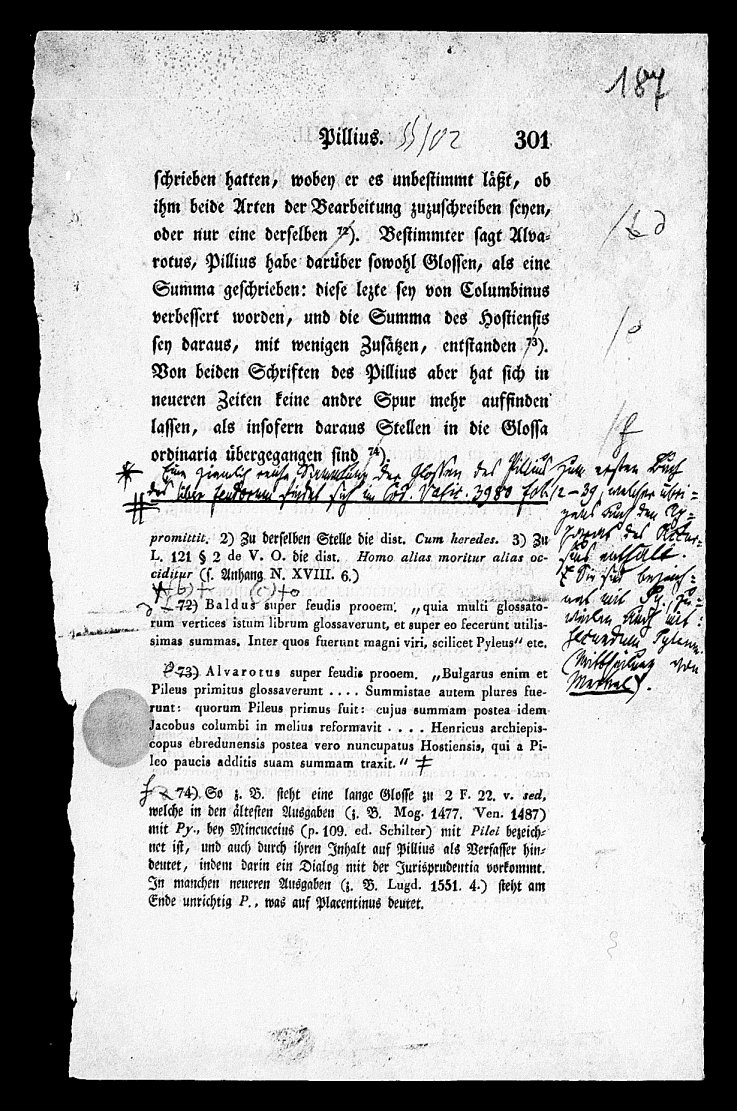 187
Pillius.
301
schrieben hatten, wobey er es unbestimmt läßt, ob
ihm beide Arten der Bearbeitung zuzuschreiben seyen,
oder nur eine derselben 72). Bestimmter sagt Alva-
rotus, Pillius habe darüber sowohl Glossen, als eine
Summa geschrieben: diese lezte sey von Columbinus
verbessert worden, und die Summa des Hostiensis
sey daraus, mit wenigen Zusätzen, entstanden 73).
Von beiden Schriften des Pillius aber hat sich in
neueren Zeiten keine andre Spur mehr auffinden
lassen, als insofern daraus Stellen in die Glossa
ordinaria übergegangen sind 74).
Eine ziemlich reiche Sammlung der Glossen des Pillius zum ersten Buch
des liber feudorum findet sich in Cod. Vatic. 3980 fol. 12-39, welcher übri-
gens auch den
des
enthält.
Sie sind bezeich-
net mit Py.,
auch mit
secundum Pyleum.
(Mittheilung von
Merkel).
promittit. 2) Zu derselben Stelle die dist. Cum heredes. 3) Zu
L. 121 § 2 de V. O. die dist. Homo alias moritur alias oc-
ciditur (s. Anhang N. XVIII. 6.)
72) Baldus super feudis prooem. „quia multi glossato-
rum vertices istum librum glossaverunt, et super eo fecerunt utilis-
simas summas. Inter quos fuerunt magni viri, scilicet Pyleus“ etc.
73) Alvarotus super feudis prooem. „Bulgarus enim et
Pileus primitus glossaverunt .... Summistae autem plures fue-
runt: quorum Pileus primus fuit: cujus summam postea idem
Jacobus columbi in melius reformavit .... Henricus archiepis-
copus ebredunensis postea vero nuncupatus Hostiensis, qui a Pi-
leo paucis additis suam summam traxit.“
74) So z. B. steht eine lange Glosse zu 2 F. 22. v. sed,
welche in den ältesten Ausgaben (z. B. Mog. 1477. Ven. 1487)
mit Py., bey Mincuccius (p. 109. ed. Schilter) mit Pilei bezeich-
net ist, und auch durch ihren Inhalt auf Pillius als Verfasser hin-
deutet, indem darin ein Dialog mit der Jurisprudentia vorkommt.
In manchen neueren Ausgaben (z. B. Lugd. 1551. 4.) steht am
Ende unrichtig P., was auf Placentinus deutet.